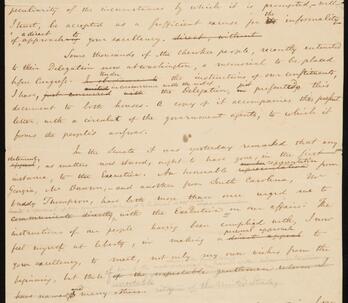 peculiarity of the circumstances by which it is prompted, will,
I trust, be accepted as a sufficient excuse for informality
a direct
of approach to your excellency.
Some thousands of the cherokee people, recently entrusted
to their Delegation now at Washington, a memorial to be placed
before Congress. Under the instructions of our constituents,
I have, just concurrence with the Delegation, just presented this
document to both houses. A copy of it accompanies this present
letter, with a circulat of the government agents, to which it
from the people's answer.
In the Senate it was yesterday remarked that any
as matters now stand, ought to have gone, in the first
instance, to the Executive. An honorable representation from
Georgia, Mr. and another from South Carolina, Mr
Waddy Thompson, have both more than once urged me to
communicate directly, with the Executive on our affairs. The
instructions of my people having been complied with, I now
feel myself at liberty, in making a direct appeal to
your excellency, to meet, not only my own wishes from the
beginning, but those of the respectable gentlemen whom I
have named many others